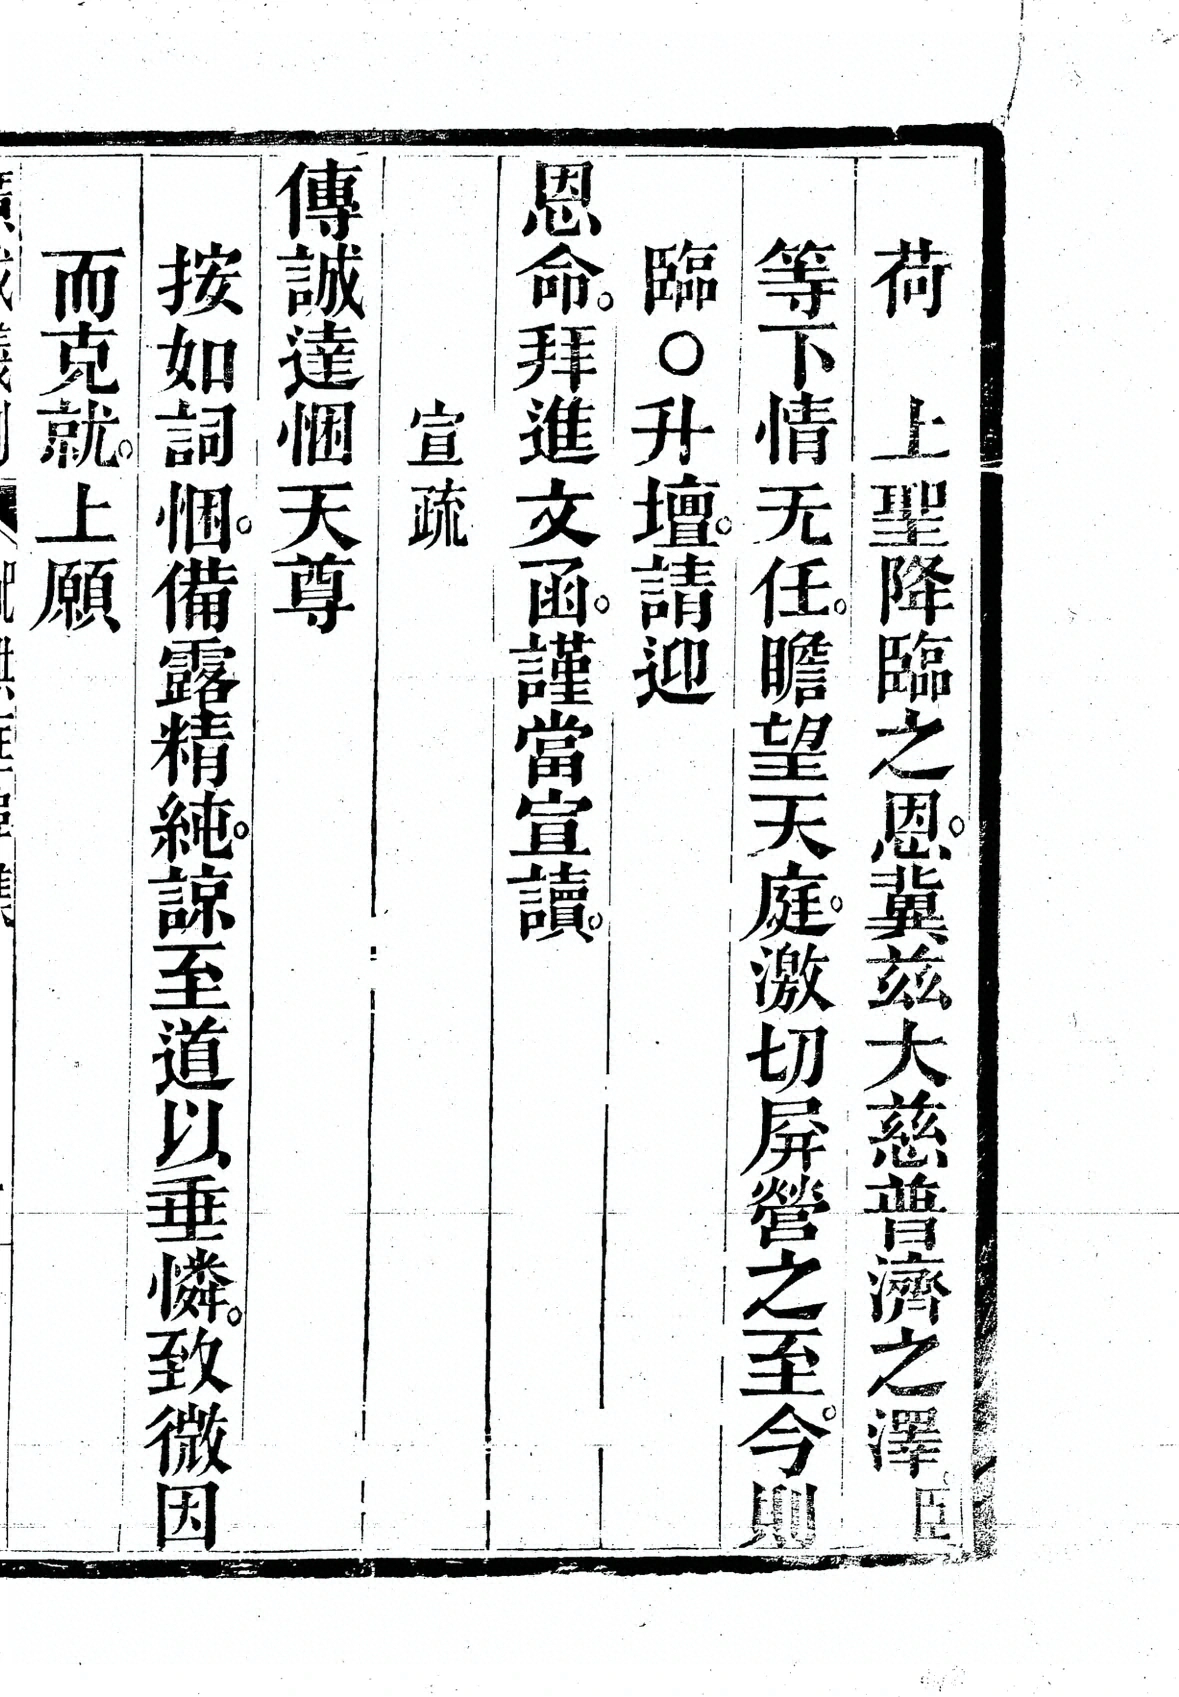 荷　上聖降臨之恩。冀茲大慈普濟之澤。臣
等下情无任。瞻望天庭。激切屏營之至。今則
臨○升壇。請迎
恩命。拜進文函。謹當宣讀。
宣疏
傳誠達悃天尊
按如詞悃。備露精純。諒至道以垂憐。致微因
而克就。上願